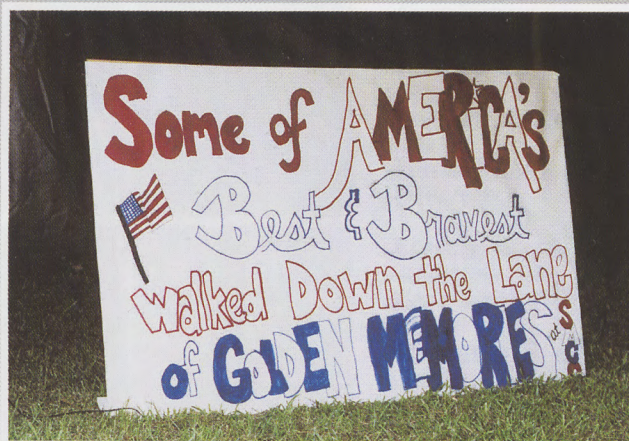 Some of AMERICA's
Best & Bravest
Walked Down the Lane
of GOLDEN MEMORES at SAC